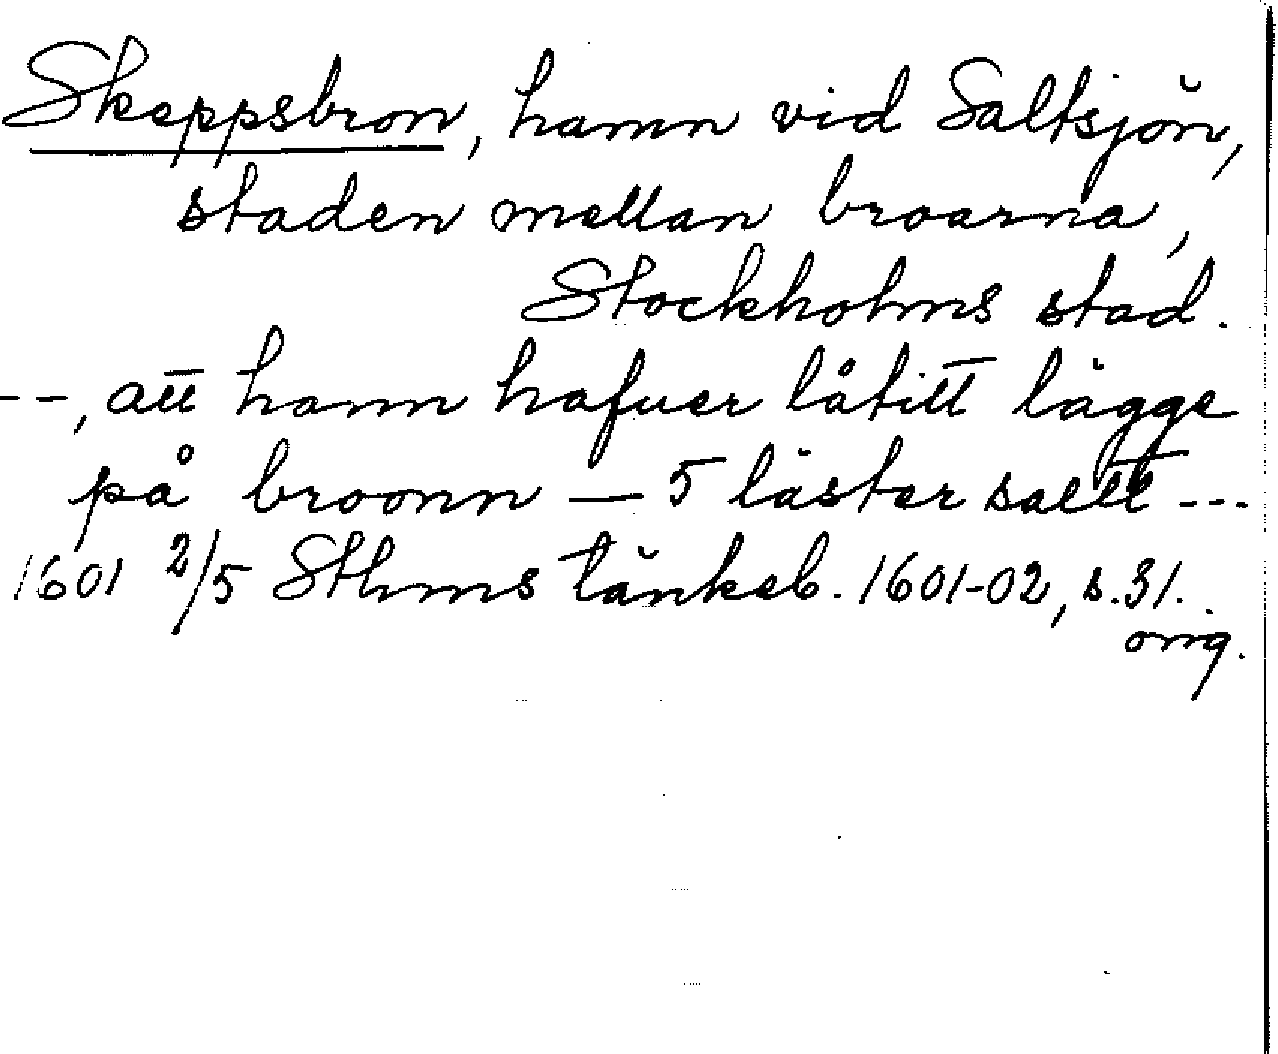 Skeppsbron, hamn vid Saltsjön,
staden mellan broarna,
Stockholms stad.
--, att hann hafuer låtitt lägge
på broonn — 5 läster saltt ---
1601 2/5 Sthms tänkeb. 1601-02, s. 31.
orig.